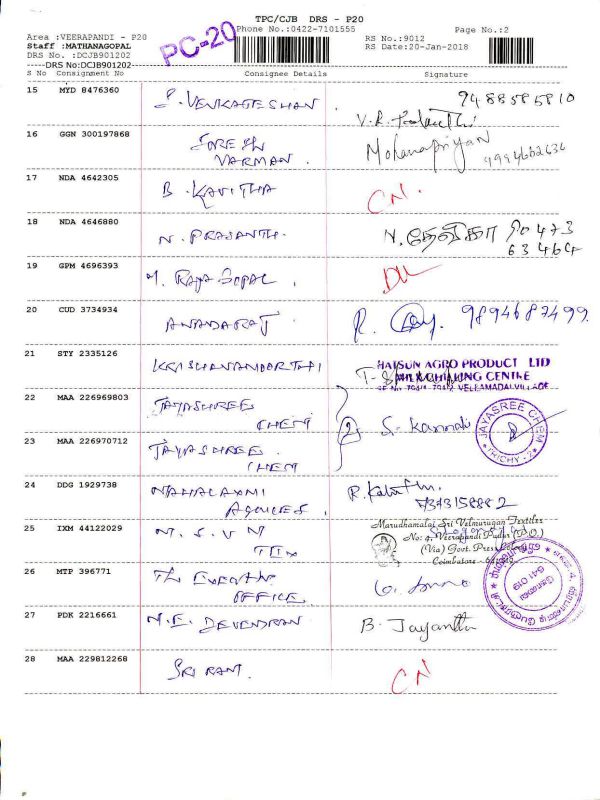 TPC/CJB DRS - P20
PC-20
Phone No.:0422-7101555
Page No.:2
Area :VEERAPANDI - P20
RS No.:9012
Staff :MATHANAGOPAL
RS Date:20-Jan-2018
DRS No. :DCJB901202
----DRS No:DCJB901202----
S No Consignment No Consignee Details Signature
15 MYD 8476360 S. VENKATESHAN 9488585810
16 GGN 300197868 SURESH
VARMAN. Mohanapriyan
17 NDA 4642305 B. KAVITHA CN.
18 NDA 4646880 N. PRASANTH. 90473
63464
19 GPM 4696393 M. RAJA GOPAL. DL
20 CUD 3734934 ANANDARAJ R. 9894687499
21 STY 2335126 KRISHANAMOORTHI HATSUN AGRO PRODUCT LTD
MILK CHILLING CENTRE
VEERAMADAI VILLAGE
22 MAA 226969803 JAYASHREE
CHEM 2 S. Kannan JAYASREE CHEM
TRICHY-2
23 MAA 226970712 JAYASHREE.
CHEM
24 DDG 1929738 MAHALAXMI
AGENCIES R.
25 IXM 44122029 M. S. V. M
TEX Marudhamalai Sri Velmurugan Textiles
No: 4, Veerapandi Pudur (P.O.)
(Via) Govt. Press Colony
Coimbatore - 641019
26 MTP 396771 THE EXECUTIVE
OFFICE.
641 019
27 PDK 2216661 N.E. DEVENDRAN B. Jayanthi
28 MAA 229812268 SRI RAM. CN